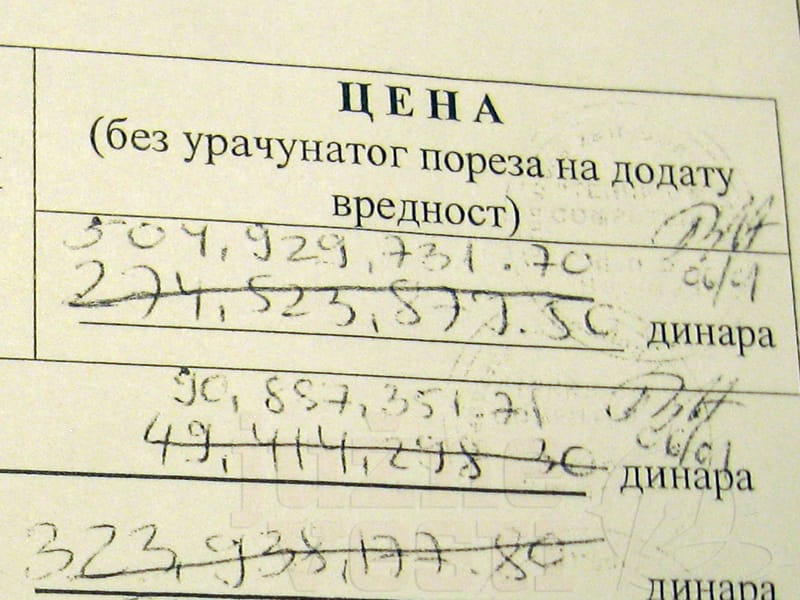 ЦЕНА
(без урачунатог пореза на додату
вредност)
504,929,731.70
06/01
274,523,879.50 динара
90,887,351.71
06/01
49,414,298.30 динара
323,938,177.80 динара
južne
vesti